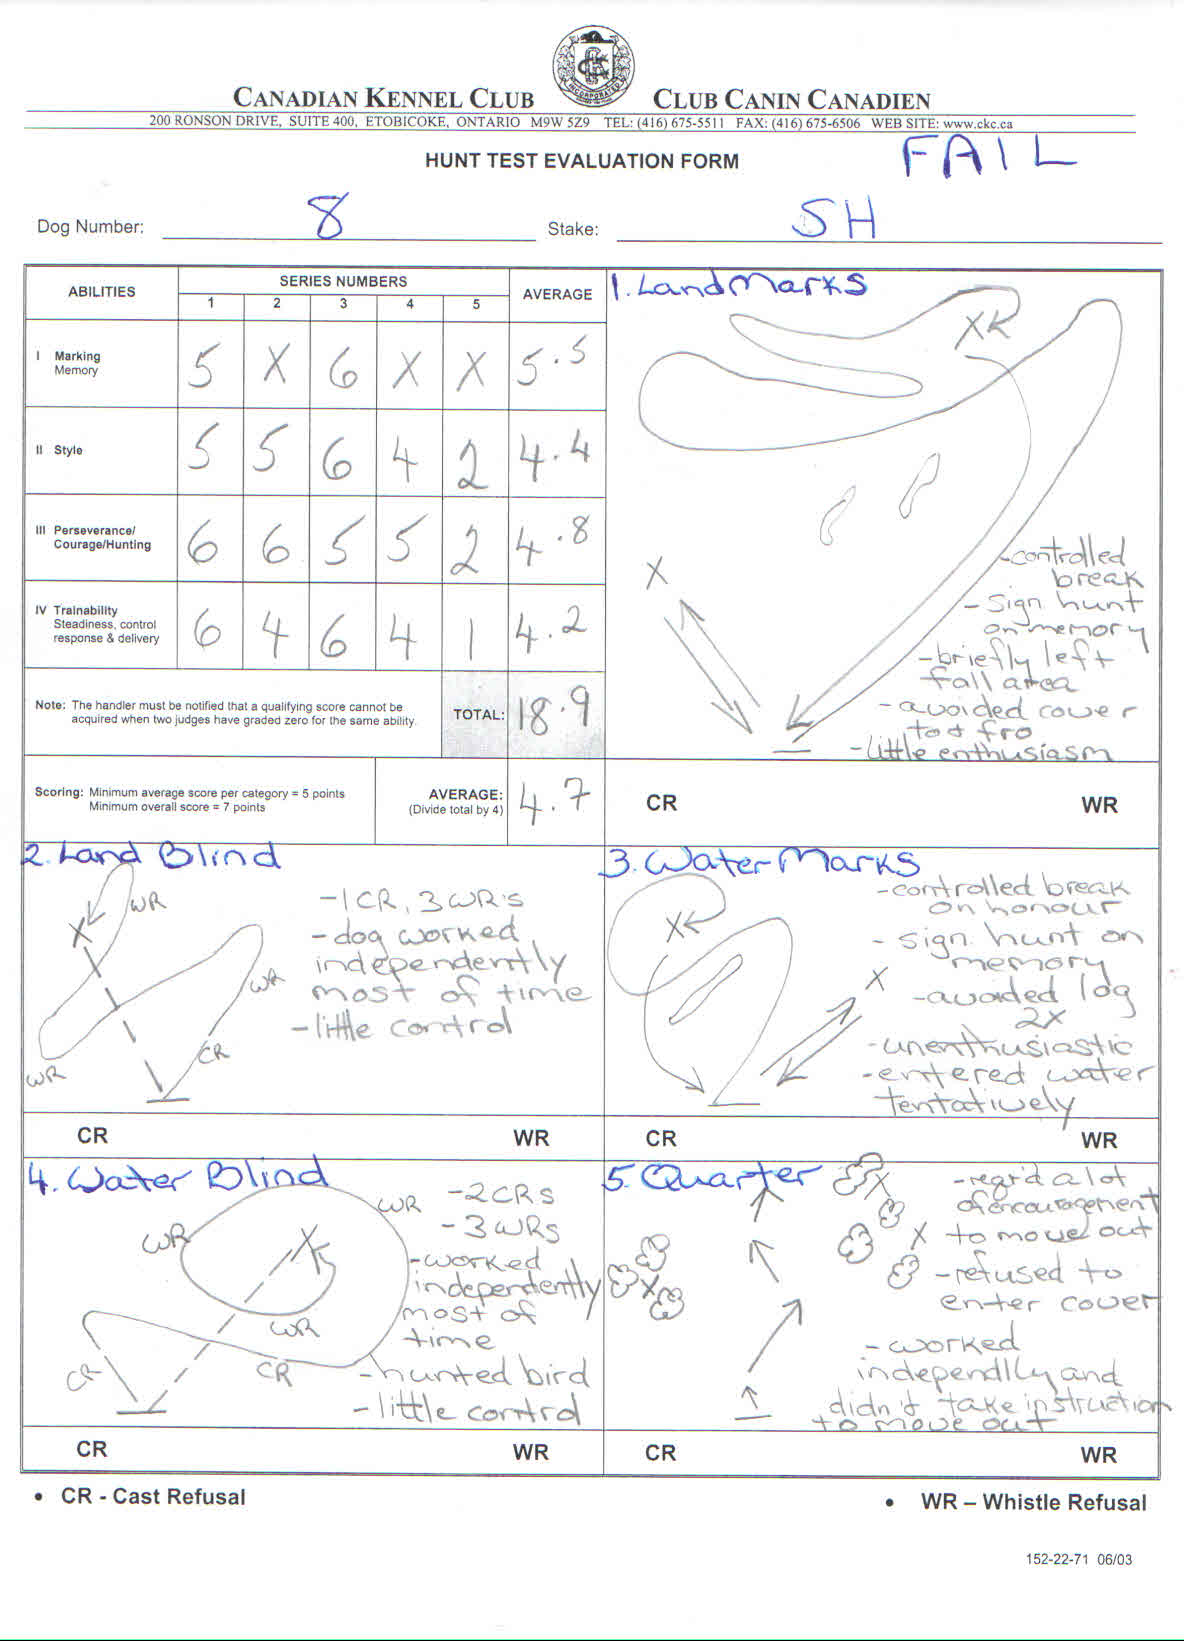 CANADIAN KENNEL CLUB CLUB CANIN CANADIEN
200 RONSON DRIVE, SUITE 400, ETOBICOKE, ONTARIO M9W 5Z9 TEL: (416) 675-5511 FAX: (416) 675-6506 WEB SITE: www.ckc.ca
HUNT TEST EVALUATION FORM
FAIL
Dog Number: 8 Stake: SH
ABILITIES SERIES NUMBERS AVERAGE
1 2 3 4 5
I Marking
Memory
5 X 6 X X 5.5
II Style 5 5 6 4 2 4.4
III Perseverance/
Courage/Hunting
6 6 5 5 2 4.8
IV Trainability
Steadiness, control
response & delivery
6 4 6 4 1 4.2
Note: The handler must be notified that a qualifying score cannot be
acquired when two judges have graded zero for the same ability.
TOTAL: 18.9
Scoring: Minimum average score per category = 5 points
Minimum overall score = 7 points
AVERAGE:
(Divide total by 4)
4.7
1. Land Marks
X
X
-controlled
break
- sign. hunt
on memory
-briefly left
fall area
- avoided cover
to & fro
-little enthusiasm
CR WR
2. Land Blind
WR
X
WR
CR
WR
-1CR, 3WR's
-dog worked
independently
most of time
-little control
CR WR
3. Water Marks
X
X
-controlled break
on honour
- sign. hunt on
memory
-avoided log
2X
-unenthusiastic
-entered water
tentatively
CR WR
4. Water Blind
WR
WR
X
WR
CR
CR
-2CRs
-3WRs
-worked
independently
most of
time
-hunted bird
-little control
CR WR
5. Quarter
X
X
X
-req'd a lot
of encouragement
to move out
-refused to
enter cover
- worked
independlly and
didn't take instruction
to move out
CR WR
• CR - Cast Refusal • WR – Whistle Refusal
152-22-71 06/03